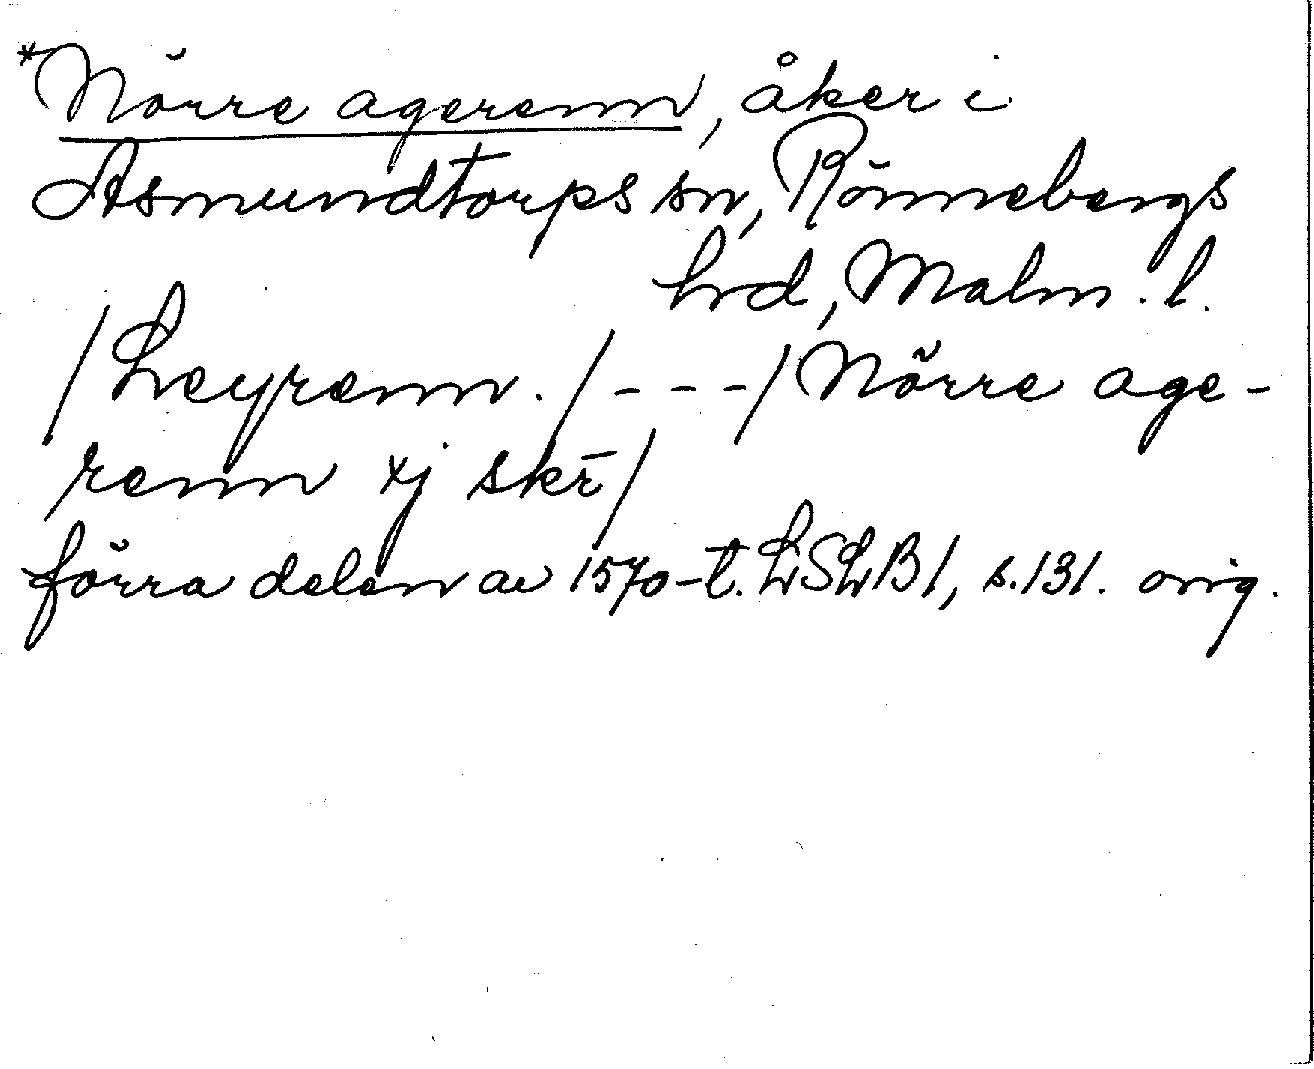 *Nörre agerenn, åker i
Asmundtorps sn, Rönnebergs
hrd, Malm. l.
/Leyrenn./---/Nörre age-
renn xj skr̄/
förra delen av 1570-t. LSLB1, s.131. orig.